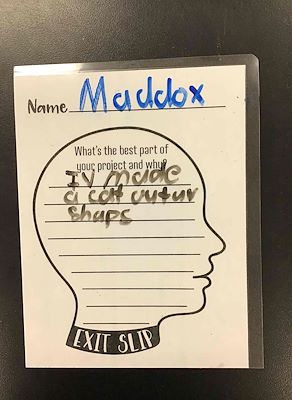 Name Maddox
What's the best part of
your project and why?
Iv made
a cat outuv
shaps
EXIT SLIP